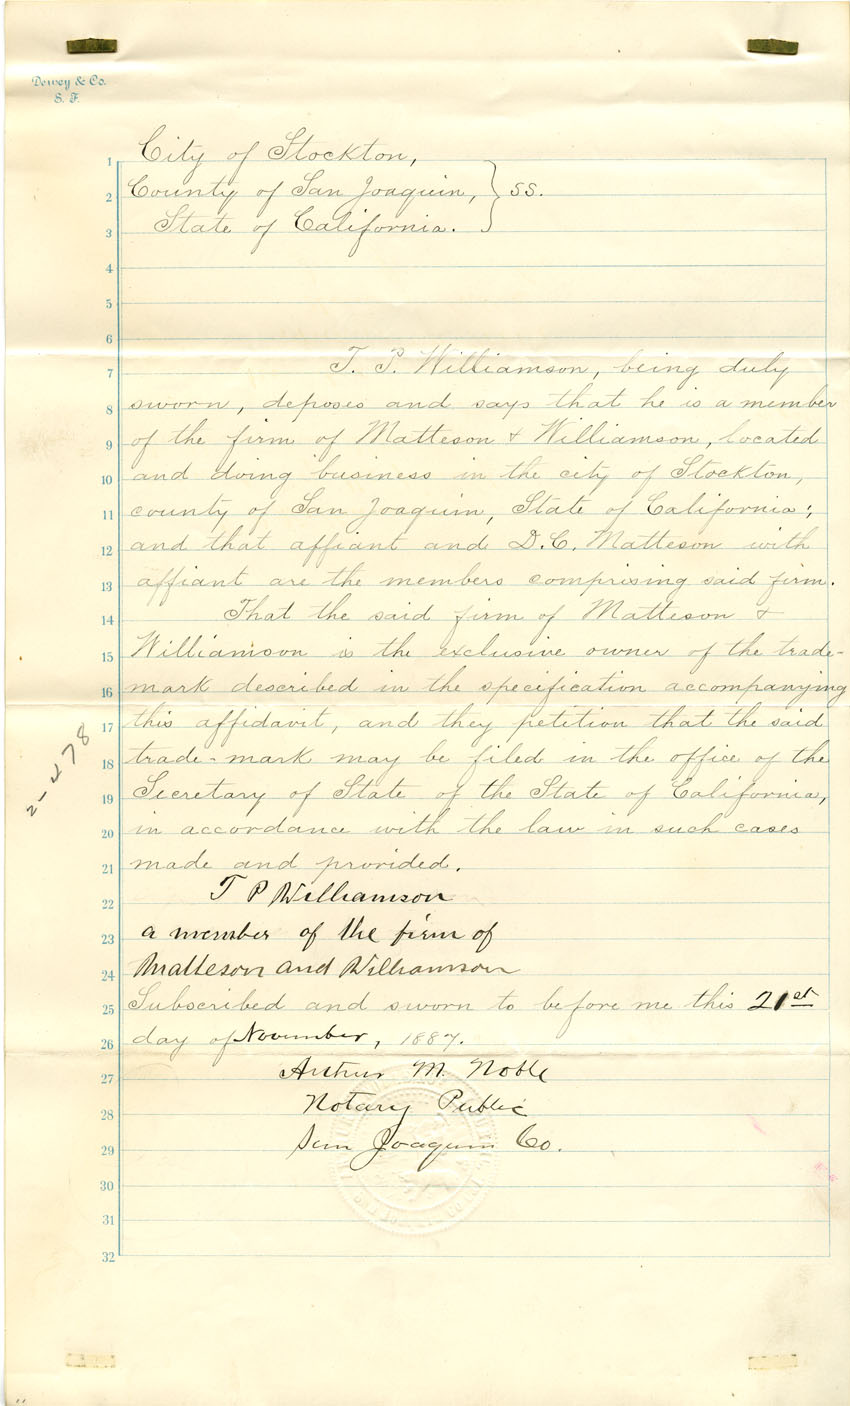 Dewey & Co.
S. F.
1 City of Stockton,
2 County of San Joaquin, } ss.
3 State of California.
4
5
6
7 T. P. Williamson, being duly
8 sworn, deposes and says that he is a member
9 of the firm of Matteson & Williamson, located
10 and doing business in the city of Stockton,
11 county of San Joaquin, State of California;
12 and that affiant and D.C. Matteson with
13 affiant are the members comprising said firm.
14 That the said firm of Matteson &
15 Williamson is the exclusive owner of the trade-
16 mark described in the specification accompanying
17 this affidavit, and they petition that the said
18 trade-mark may be filed in the office of the
19 Secretary of State of the State of California,
20 in accordance with the law in such cases
21 made and provided.
22 T P Williamson
23 a member of the firm of
24 Matteson and Williamson
25 Subscribed and sworn to before me this 21st
26 day of November, 1887.
27 Arthur M. Noble
28 Notary Public
29 San Joaquin Co.
30
31
32